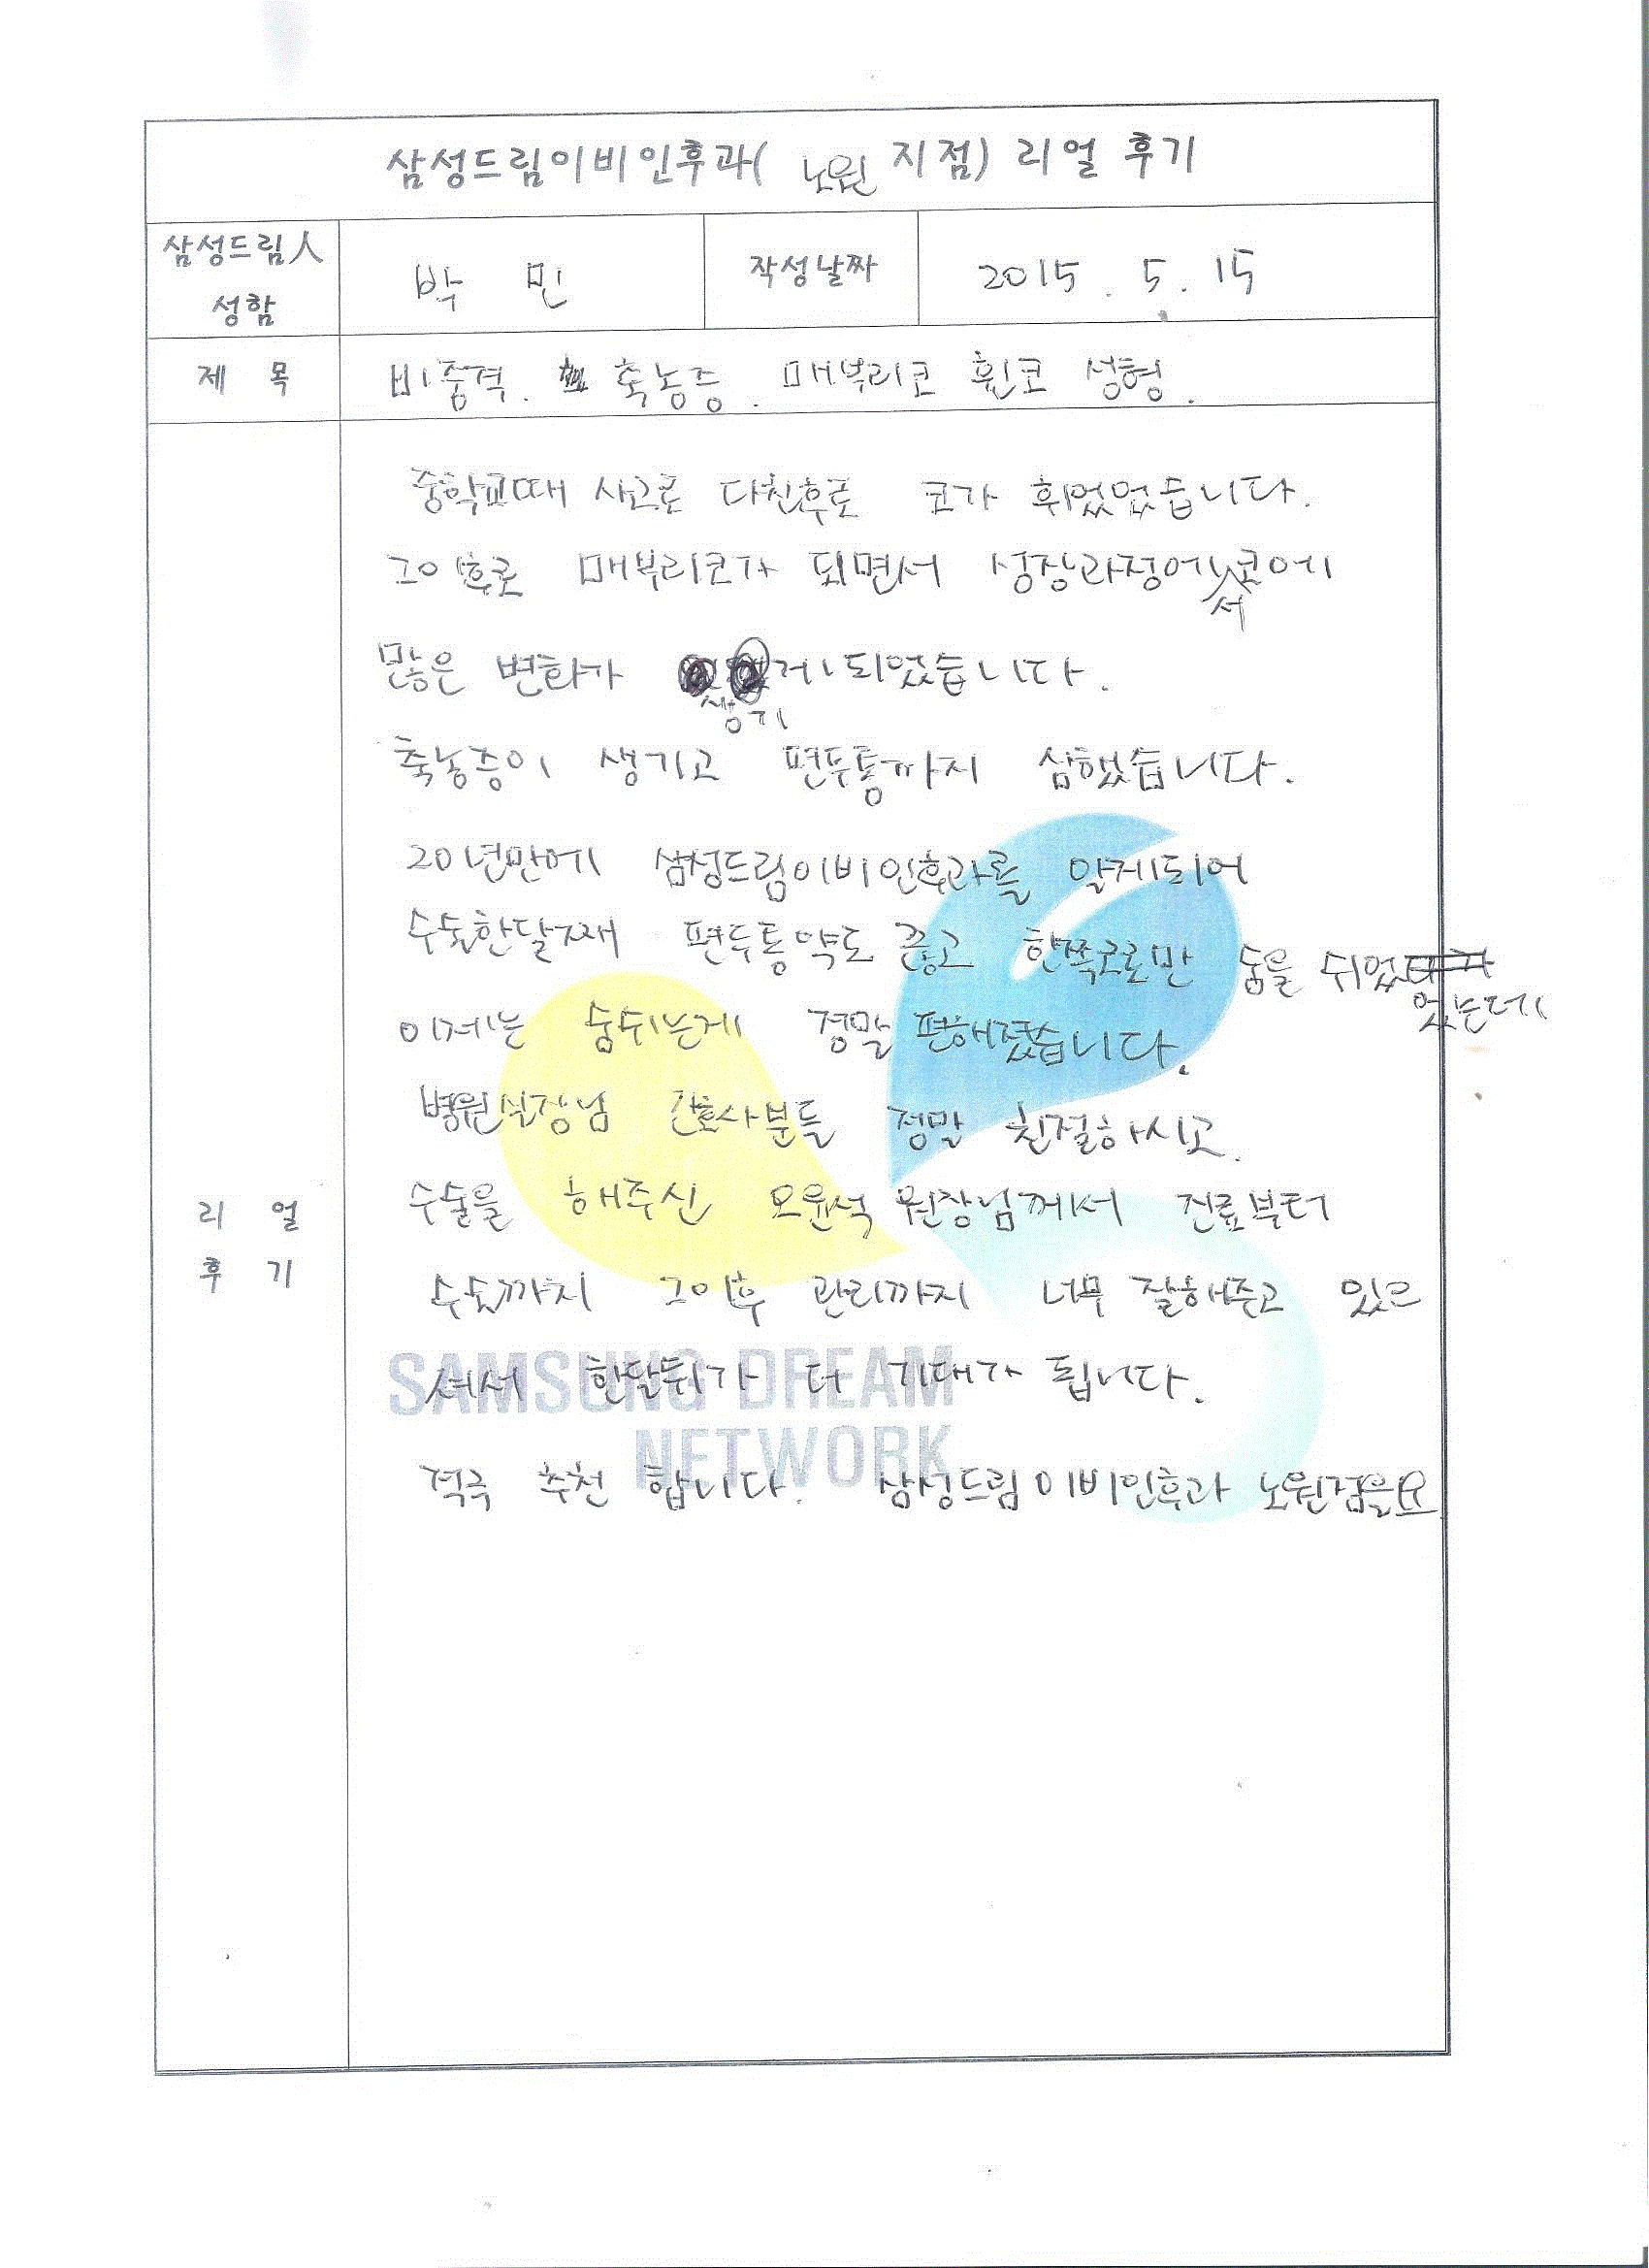 삼성드림이비인후과( 노원 지점) 리얼 후기
삼성드림人 성함
박 민
작성날짜
2015. 5. 15
제 목
비중격. 축농증. 매부리코 휜코 성형.
리 얼 후 기
중학교때 사고로 다친후로 코가 휘었었습니다.
그이후로 매부리코가 되면서 성장과정에서 코에
많은 변화가 생기게 되었습니다.
축농증이 생기고 편두통까지 심했습니다.
20년만에 삼성드림이비인후과를 알게되어
수술한달째 편두통약도 끊고 한쪽으로만 숨을 쉬었었는데
이제는 숨쉬는게 정말 편해졌습니다.
병원실장님 간호사분들 정말 친절하시고.
수술을 해주신 오윤석 원장님께서 진료부터
수술까지 그이후 관리까지 너무 잘해주고 있으
셔서 한달뒤가 더 기대가 됩니다.
적극 추천 합니다. 삼성드림이비인후과 노원점을요
SAMSUNG DREAM
NETWORK